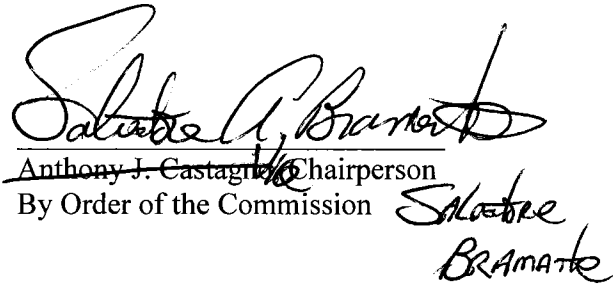 Salvatore A. Bramante
Anthony J. Castagno, V/C Chairperson
By Order of the Commission
Salvatore
Bramante